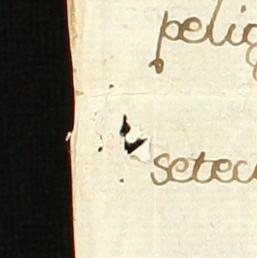 pelig
setec